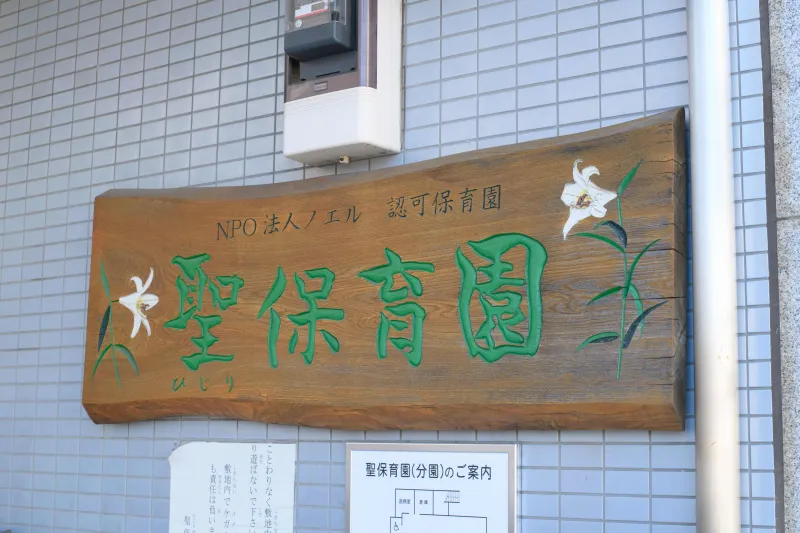 NPO法人ノエル 認可保育園
聖保育園
ひじり
ことわりなく敷地内
り遊ばないで下さい
敷地内でケガ
も責任は負いま
聖保育園(分園)のご案内